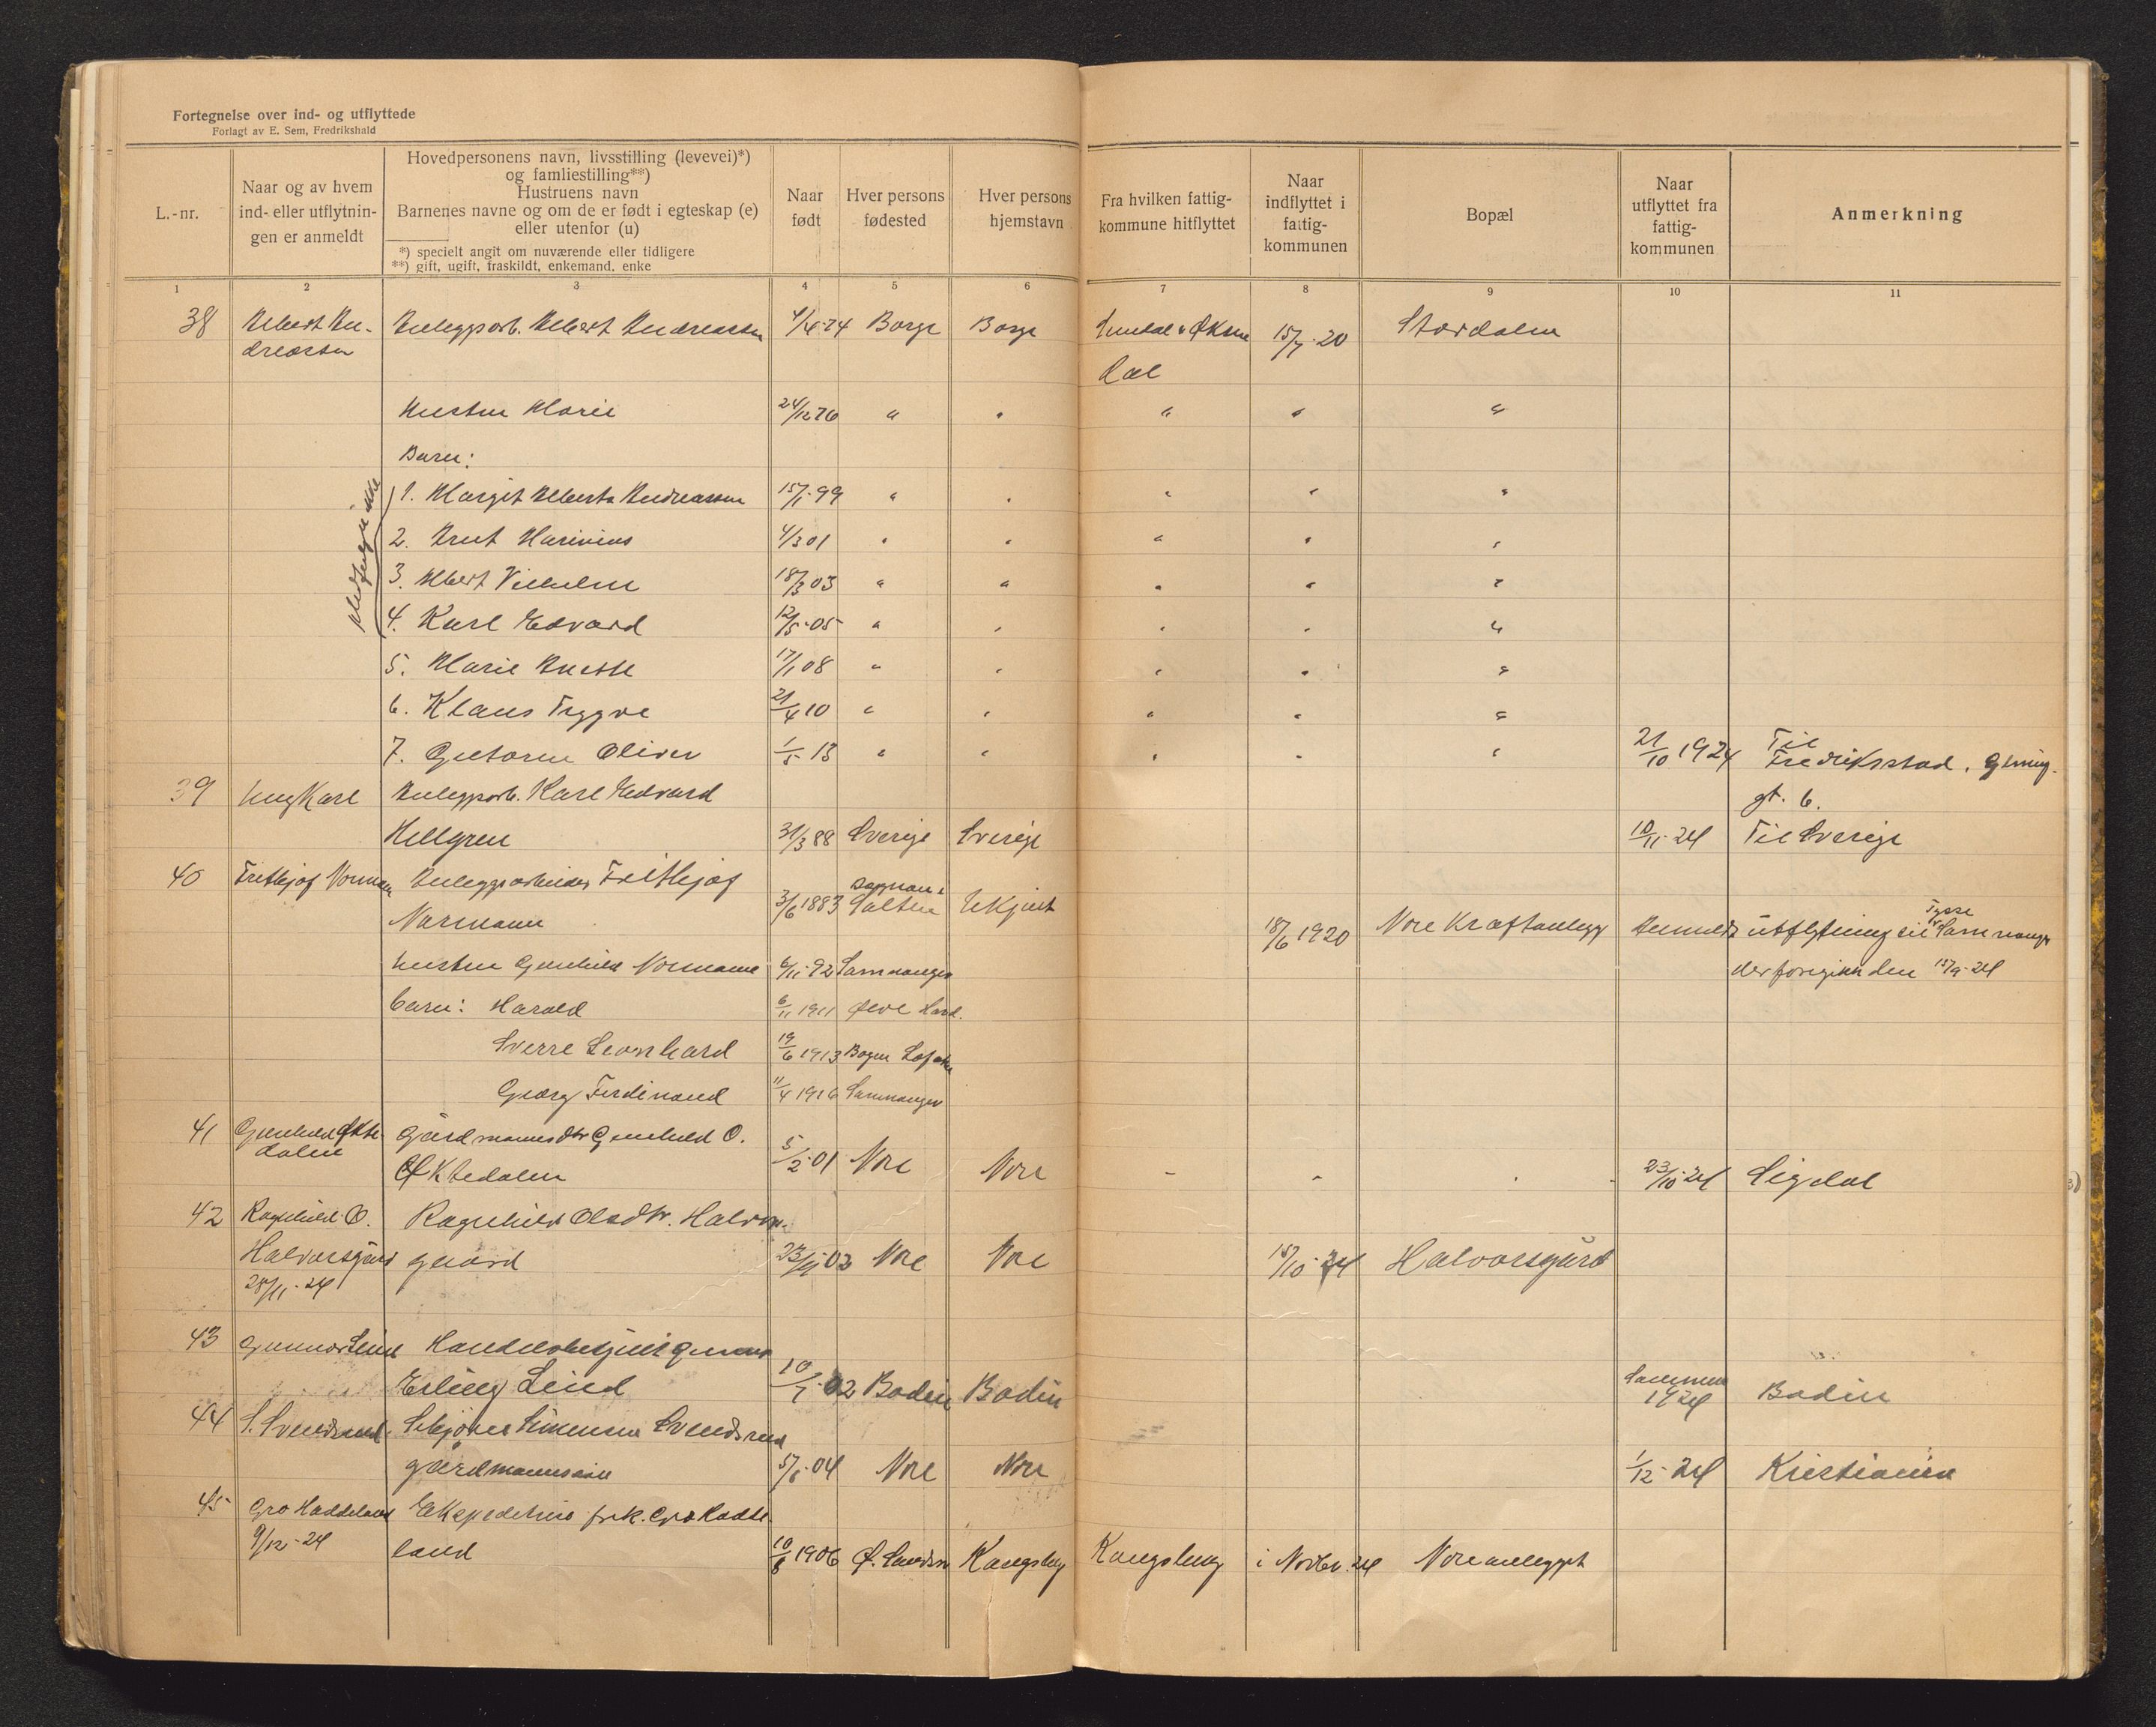 Fortegnelse over ind- og utflyttede
Forlagt av E. Sem, Fredrikshald
L.-nr.
Naar og av hvem
ind- eller utflytnin-
gen er anmeldt
Hovedpersonens navn, livsstilling (levevei)*)
og famliestilling**)
Hustruens navn
Barnenes navne og om de er født i egteskap (e)
eller utenfor (u)
*) specielt angit om nuværende eller tidligere
**) gift, ugift, fraskildt, enkemand, enke
Naar
født
Hver persons
fødested
Hver persons
hjemstavn
Fra hvilken fattig-
kommune hitflyttet
Naar
indflyttet i
fattig-
kommunen
Bopæl
Naar
utflyttet fra
fattig-
kommunen
Anmerkning
1 2 3 4 5 6 7 8 9 10 11
38 Albert An- Anlegsarb. Albert Andreassen 4/4-74 Borge Borge Sundal & Øksen 15/7-20 Stordalen
dreassen dal
Hustru Marie 24/12 76 " " " " "
Barn:
1. Margit Alberta Andreassen 15/1-99 " " " " "
2. Knut Marinius 4/3 01 " " " " "
3. Albert Vilhelm 18/3 03 " " " " "
4. Karl Edvard 12/5-05 " " " " "
5. Marie Anette 17/1 08 " " " " "
6. Klaus Trygve 21/4 10 " " " " "
7. Guttorm Oliver 1/5 13 " " " " " 21/10 1924 Til
Fredriksstad,
gt. 6.
39 Karl Anlegsarb. Karl Edvard
Hellgren 31/3 88 Sverige Sverige 10/11-24 Til Sverige
40 Fritthjof Normann Anleggsarbeider Fritthjof
Normann 3/6 1883 Salten Ukjent 18/6 1920 Nore Kraftanlegg Anmeldt utflytning til Samnanger
Tysse
hustru Gunhild Normann 6/11-92 Samnanger der foregik den 15/9-24
barn: Harald 6/11 1911 Ølve Hard.
Sverre Leonhard 19/6 1913 Bogen Lofoten
Georg Ferdinand 11/4 1916 Samnanger
41 Gunhild Økte- Gårdmannsdtr Gunhild O.
dalen
Øktedalen 5/2-01 Nore Nore - - - 23/10-24 Sigdal
42 Ragnhild O. Ragnhild Olsdtr. Halvors-
Halvorsgård gaard 23/11-02 Nore Nore 15/10-24 Halvorsgård
28/11-24
43 Gunnar Lind Handelsbetjent Gunnar
Erling Lind 10/7-02 Bodin Bodin Sommeren 1924 Bodin
44 S. Svendsrud Svendsrud
gårdmannssøn 5/6-04 Nore Nore 1/12-24 Kristiania
45 Gro Haddeland Ekspeditrise frk. Gro Hadde-
9/12-24 land 10/8 1906 Kongsberg Kongsberg i Novbr. 24 Noreanlegget